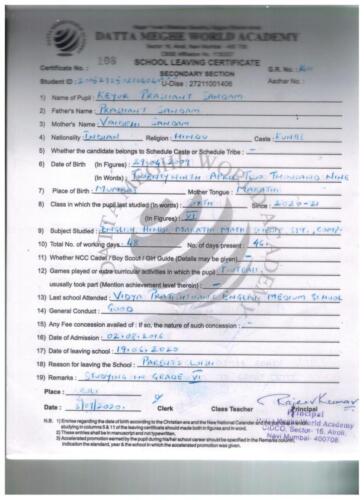 DATTA MEGHE WORLD ACADEMY
Sector 16, Airoli, Navi Mumbai - 400 708.
Certificate No. : 108 SCHOOL LEAVING CERTIFICATE G.R. No.:
SECONDARY SECTION
Student ID : U-Dise : 27211001406 Aadhar No. :
1) Name of Pupil : KEYUR PRASHANT SANGAM
2) Father's Name : PRASHANT SANGAM
3) Mother's Name : SANGAM
4) Nationality : INDIAN Religion : HINDU Caste : KUNBI
5) Whether the candidate belongs to Schedule Caste or Schedule Tribe : -
6) Date of Birth (In Figures) : 29/04/2009
(In Words) : TWENTY NINTH APRIL TWO THOUSAND NINE
7) Place of Birth : MUMBAI Mother Tongue : MARATHI
8) Class in which the pupil last studied (In Words) : SIXTH Since : 2020-21
(In Figures) : VI
9) Subject Studied : ENGLISH, HINDI, MARATHI, MATH
10) Total No. of working days : 48 No. of days present : 46
11) Whether NCC Cadet / Boy Scout / Girl Guide (Details may be given) : -
12) Games played or extra curricular activities in which the pupil : FOOTBALL
usually took part (Mention achievement level therein) : -
13) Last school Attended : VIDYA ENGLISH MEDIUM SCHOOL
14) General Conduct : GOOD
15) Any Fee concession availed of : If so, the nature of such concession : -
16) Date of Admission : 02.08.2016
17) Date of leaving school : 19.06.2020
18) Reason for leaving the School : PARENTS WISH
19) Remarks : STUDYING IN GRADE VI
Place :
Date : Clerk Class Teacher Principal
Principal
World Academy
CIDCO, Sector- 16, Airoli,
Navi Mumbai- 400708.
N.B. 1) Entries regarding the date of birth according to the Christian era and the New National Calendar
studying in columns 5 & 11 of the leaving certificate should made both in figures and in words.
2) These entries shall be in manuscript and not typewritten.
3) Accelerated promotion earned by the pupil during his/her school career should be specified in the Remarks column,
indication the standard, year & the school in which the accelerated promotion was given.